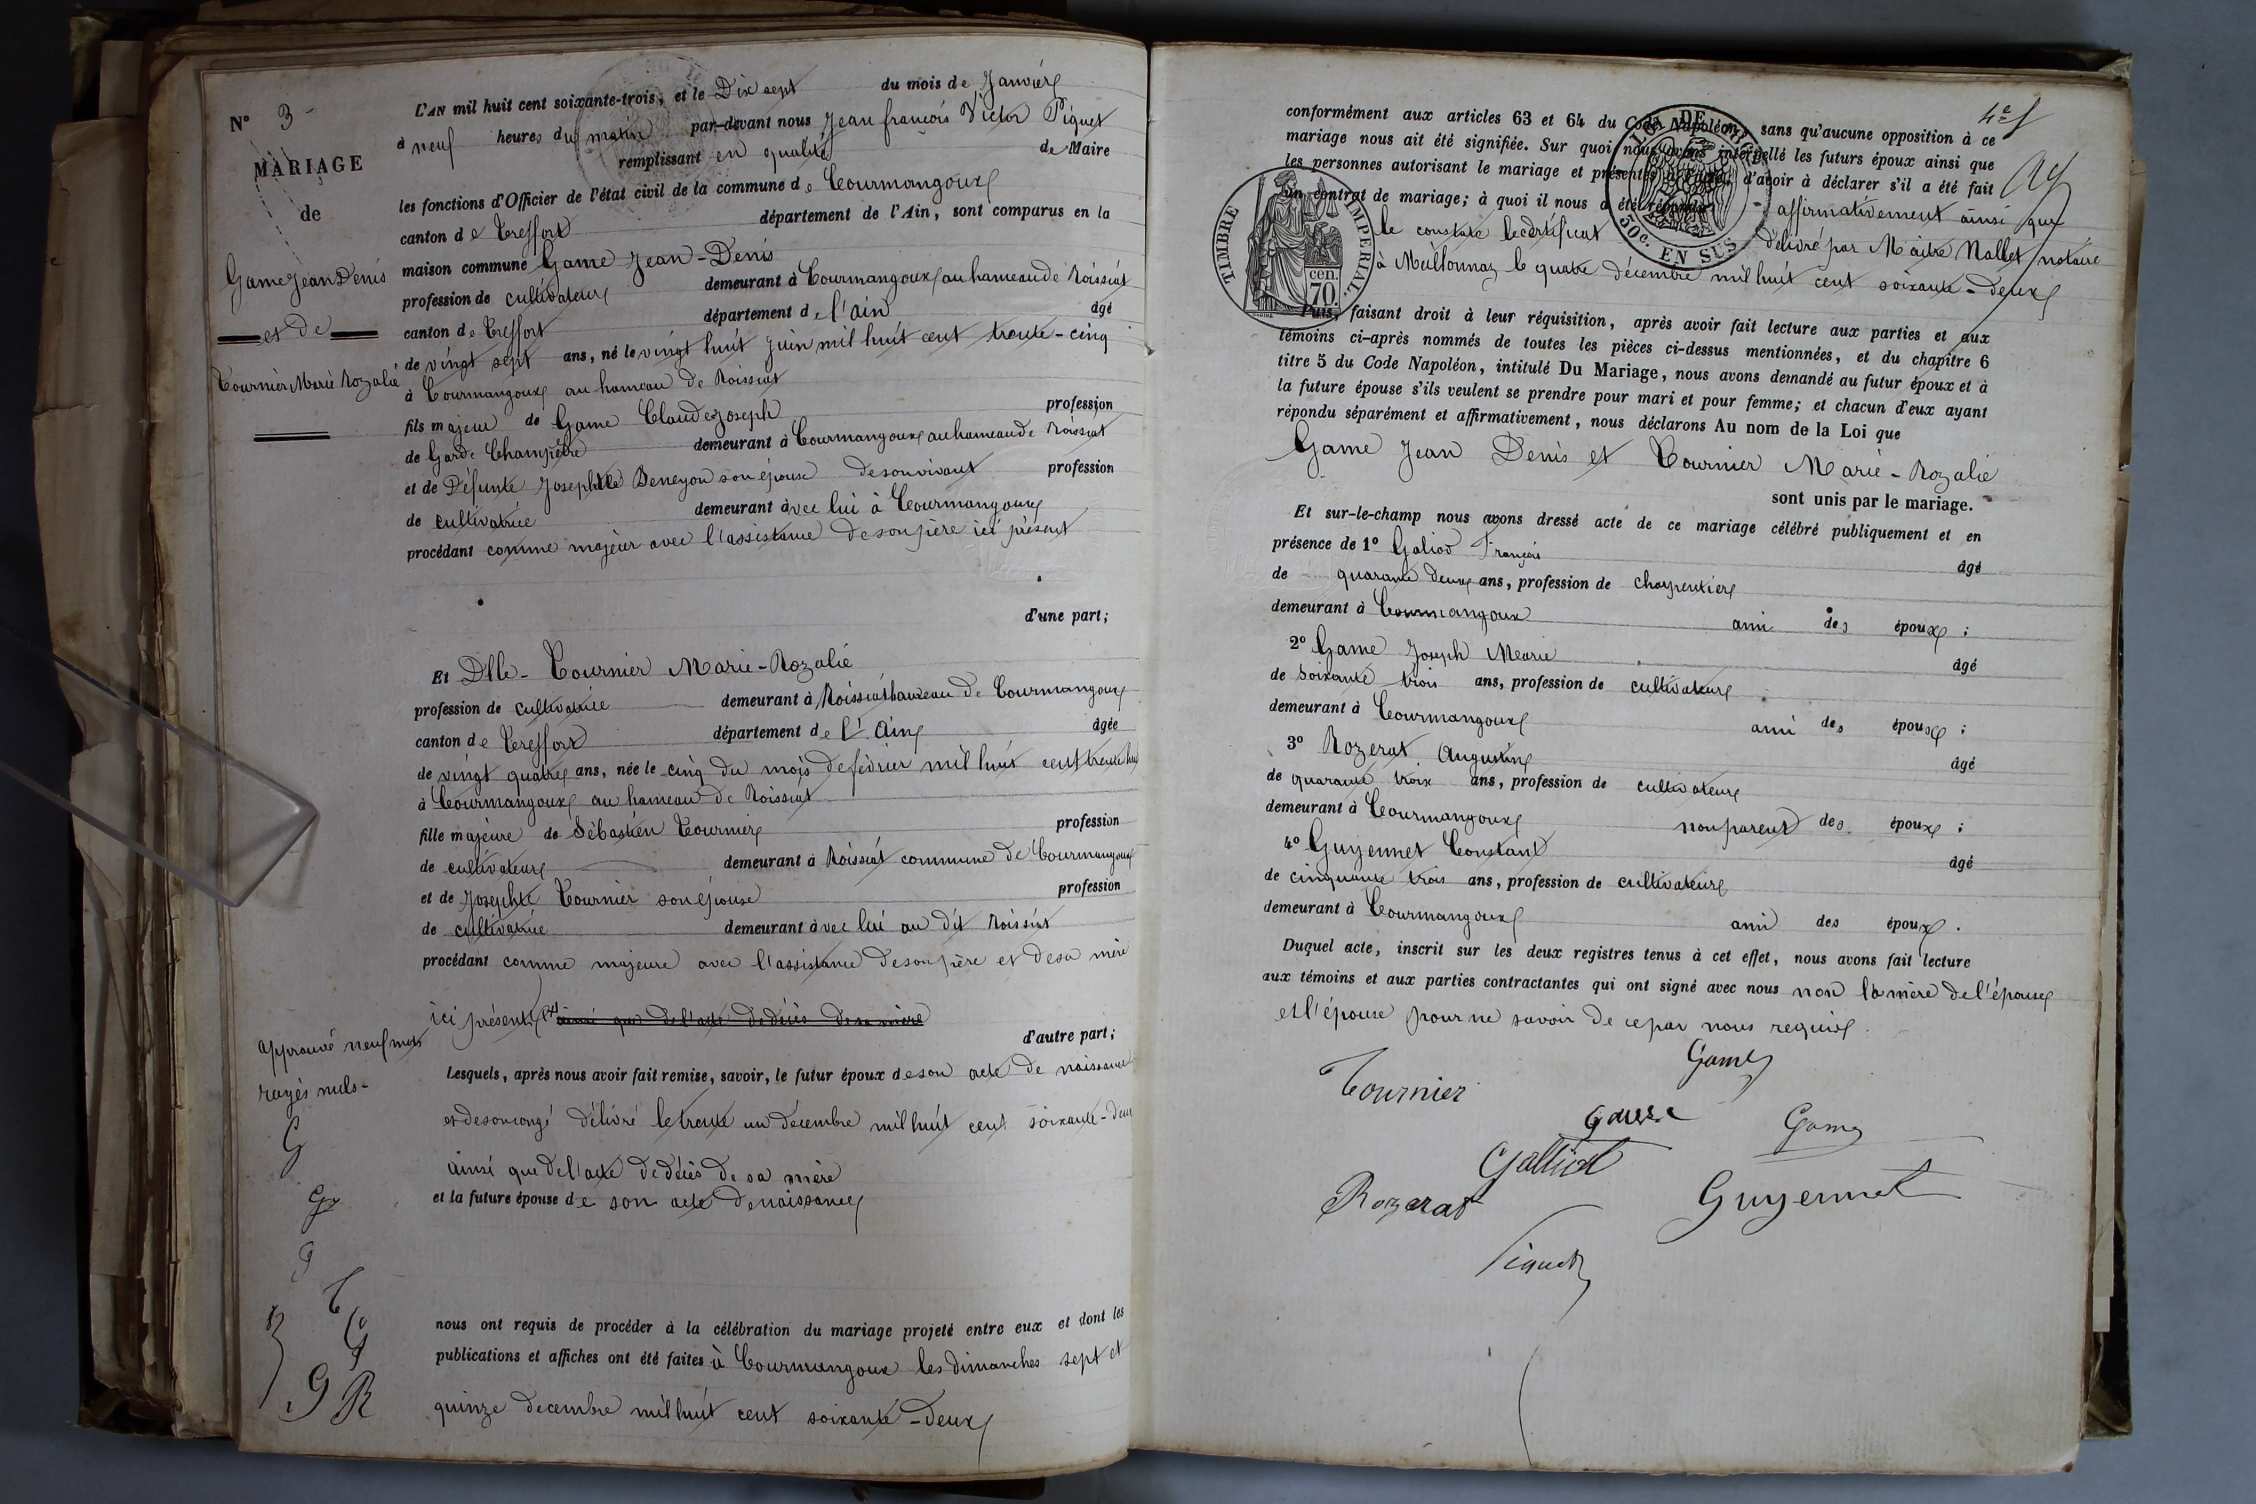 N° 3
MARIAGE
de
Game Jean Denis
et de
Tournier Marie Rozalie
L'AN mil huit cent soixante-trois, et le Dix sept du mois de Janvier
à neuf heures du matin par-devant nous Jean françois Victor Piquet
remplissant en qualité de Maire
les fonctions d'Officier de l'état civil de la commune de Courmangoux
canton de Treffort département de l'Ain, sont comparus en la
maison commune Game Jean-Denis
profession de cultivateur demeurant à Courmangoux au hameau de Roissiat
canton de Treffort département de l'ain âgé
de vingt sept ans, né le vingt huit juin mil huit cent trente-cinq
à Courmangoux au hameau de Roissiat
fils majeur de Game Claude Joseph profession
de Garde Champêtre demeurant à Courmangoux au hameau de Roissiat
et de Défunte Josephte Beneyon son épouse de son vivant profession
de cultivatrice demeurant avec lui à Courmangoux
procédant comme majeur avec l'assistance de son père ici présent
d'une part;
Et Dlle- Tournier Marie-Rozalie
profession de cultivatrice demeurant à Roissiat hameau de Courmangoux
canton de Treffort département de l'Ain âgée
de vingt quatre ans, née le cinq du mois de février mil huit cent trente huit
à Courmangoux au hameau de Roissiat
fille majeure de Sébastien Tournier profession
de cultivateur demeurant à Roissiat commune de Courmangoux
et de Josephte Tournier son épouse profession
de cultivatrice demeurant avec lui au dit Roissiat
procédant comme majeure avec l'assistance de son père et de sa mère
ici présents ainsi que de l'acte de décès de sa mère
d'autre part;
approuvé neuf mots
rayés nuls-
Lesquels, après nous avoir fait remise, savoir, le futur époux de son acte de naissance
et de son congé délivré le trente un décembre mil huit cent soixante-deux
ainsi que de l'acte de décès de sa mère
et la future épouse de son acte de naissance
G
G
G
T
G
G R
nous ont requis de procéder à la célébration du mariage projeté entre eux et dont les
publications et affiches ont été faites à Courmangoux les dimanches sept et
quinze decembre mil huit cent soixante-deux
conformément aux articles 63 et 64 du Code Napoléon, sans qu'aucune opposition à ce
mariage nous ait été signifiée. Sur quoi nous avons interpellé les futurs époux ainsi que
les personnes autorisant le mariage et présentes à l'acte, d'avoir à déclarer s'il a été fait
un contrat de mariage; à quoi il nous a été répondu affirmativement ainsi que
le constate le certificat délivré par Maitre Mallet notaire
à Meillonnaz le quatre décembre mil huit cent soixante-deux
TIMBRE IMPERIAL
70. cen.
50c. EN SUS
Puis, faisant droit à leur réquisition, après avoir fait lecture aux parties et aux
témoins ci-après nommés de toutes les pièces ci-dessus mentionnées, et du chapitre 6
titre 5 du Code Napoléon, intitulé Du Mariage, nous avons demandé au futur époux et à
la future épouse s'ils veulent se prendre pour mari et pour femme; et chacun d'eux ayant
répondu séparément et affirmativement, nous déclarons Au nom de la Loi que
Game Jean Denis et Tournier Marie-Rozalie
sont unis par le mariage.
Et sur-le-champ nous avons dressé acte de ce mariage célébré publiquement et en
présence de 1° Galiod François âgé
de quarante deux ans, profession de charpentier
demeurant à Courmangoux ami des époux;
2° Game Joseph Marie âgé
de soixante trois ans, profession de cultivateur
demeurant à Courmangoux ami des époux;
3° Rozerat Augustin âgé
de quarante trois ans, profession de cultivateur
demeurant à Courmangoux non parent des époux;
4° Guyennet Constant âgé
de cinquante trois ans, profession de cultivateur
demeurant à Courmangoux ami des époux.
Duquel acte, inscrit sur les deux registres tenus à cet effet, nous avons fait lecture
aux témoins et aux parties contractantes qui ont signé avec nous non la mère de l'épouse
et l'épouse pour ne savoir de ce par nous requis.
Tournier Game
Game Game
Galliod
Rozerat Guyennet
Piquet